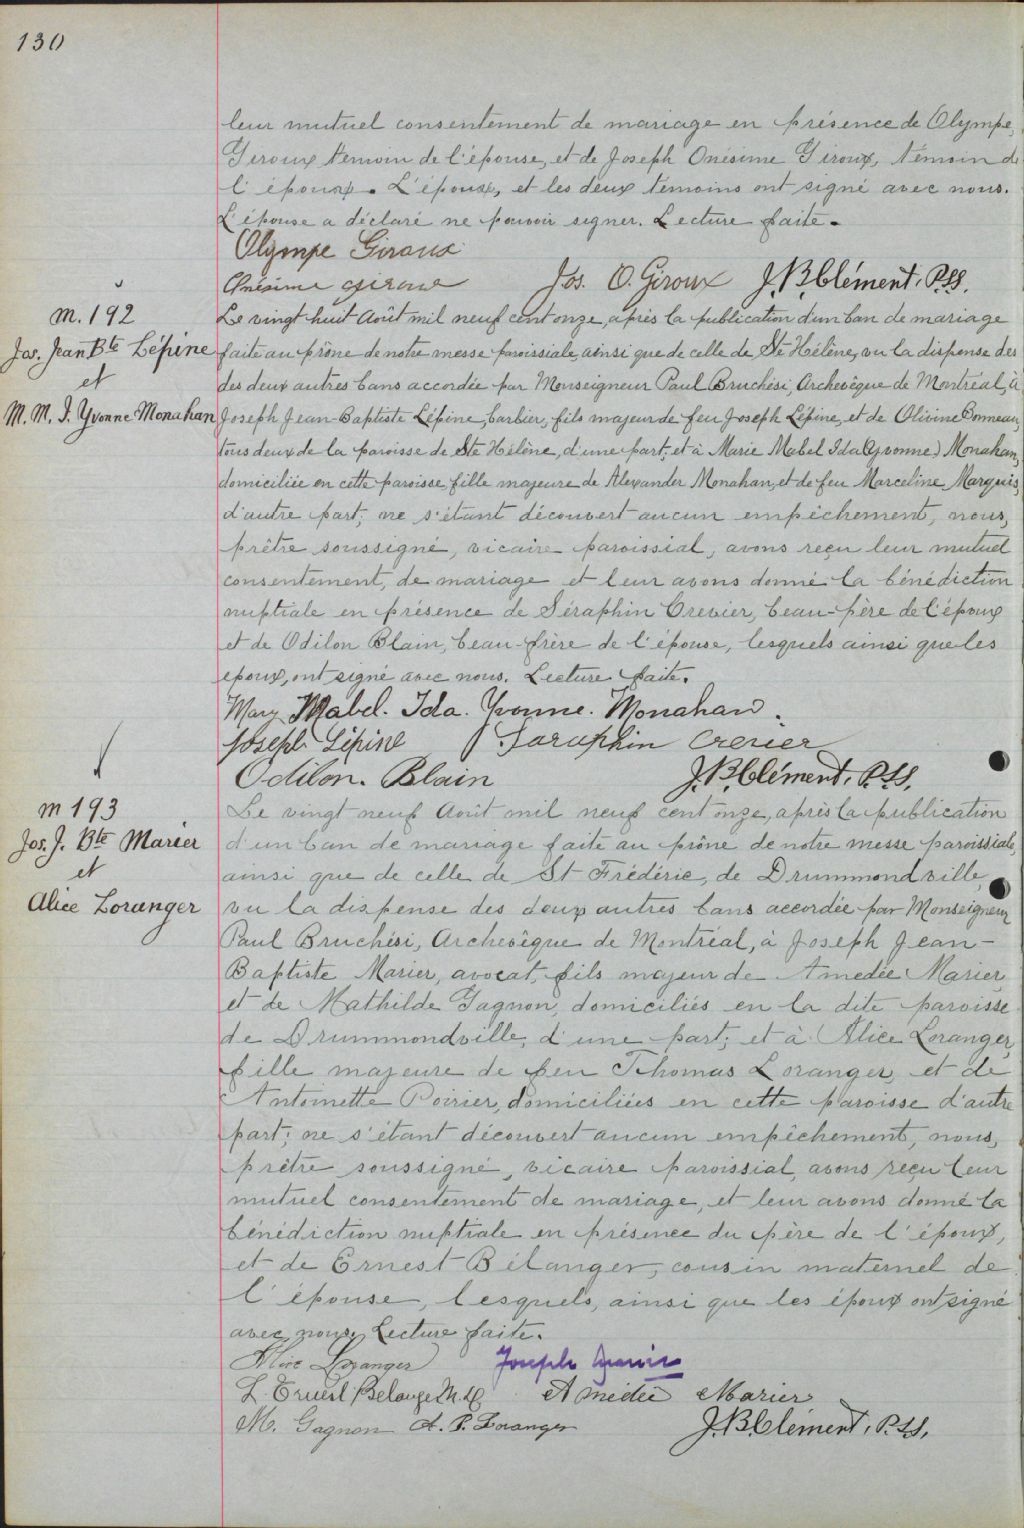 130
leur mutuel consentement de mariage en présence de Olympe,
Giroux témoin de l'épouse, et de Joseph Onésime Giroux, témoin de
l'époux. L'époux, et les deux témoins ont signé avec nous.
L'épouse a déclaré ne pouvoir signer. Lecture faite.
Olympe Giroux
Onésime Giroux Jos. O. Giroux J. B. Clément, P.S.S.
m. 192
Jos. Jean Bte Lépine
et
M. M. I. Yvonne Monahan
Le vingt huit Août mil neuf cent onze, après la publication d'un ban de mariage
faite au prône de notre messe paroissiale, ainsi que de celle de Ste Hélène, vu la dispense des
des deux autres bans accordée par Monseigneur Paul Bruchési, Archevêque de Montréal, à
Joseph Jean-Baptiste Lépine, barbier, fils majeur de feu Joseph Lépine, et de Olivine Bonneau,
tous deux de la paroisse de Ste Hélène, d'une part; et à Marie Mabel Ida (Yvonne) Monahan,
domiciliée en cette paroisse, fille majeure de Alexander Monahan, et de feu Marceline Marquis,
d'autre part; ne s'étant découvert aucun empêchement, nous,
prêtre soussigné, vicaire paroissial, avons reçu leur mutuel
consentement, de mariage et leur avons donné la bénédiction
nuptiale en présence de Séraphin Crevier, beau-père de l'époux
et de Odilon Blain, beau-frère de l'épouse, lesquels ainsi que les
epoux, ont signé avec nous. Lecture faite.
Mary Mabel. Ida. Yvonne. Monahan.
Joseph Lépine Saraphin Crevier
Odilon. Blain J. B. Clément, P.S.S.
m 193
Jos. J. Bte Marier
et
Alice Loranger
Le vingt neuf Août mil neuf cent onze, après la publication
d'un ban de mariage faite au prône de notre messe paroissiale,
ainsi que de celle de St Frédéric, de Drummondville,
vu la dispense des deux autres bans accordée par Monseigneur
Paul Bruchési, Archevêque de Montréal, à Joseph Jean-
Baptiste Marier, avocat, fils majeur de Amedée Marier,
et de Mathilde Gagnon, domiciliés en la dite paroisse
de Drummondville, d'une part; et à Alice Loranger,
fille majeure de feu Thomas Loranger, et de
Antoinette Poirier, domiciliées en cette paroisse d'autre
part; ne s'étant découvert aucun empêchement, nous,
prêtre soussigné, vicaire paroissial, avons reçu leur
mutuel consentement de mariage, et leur avons donné la
bénédiction nuptiale en présence du père de l'époux,
et de Ernest Bélanger, cousin maternel de
l'épouse, lesquels, ainsi que les époux ont signé
avec nous. Lecture faite.
Alice Loranger Joseph Marier
L. Ernest Belanger M.D. Amédée Marier
M. Gagnon A. P. Loranger J. B. Clément, P.S.S.